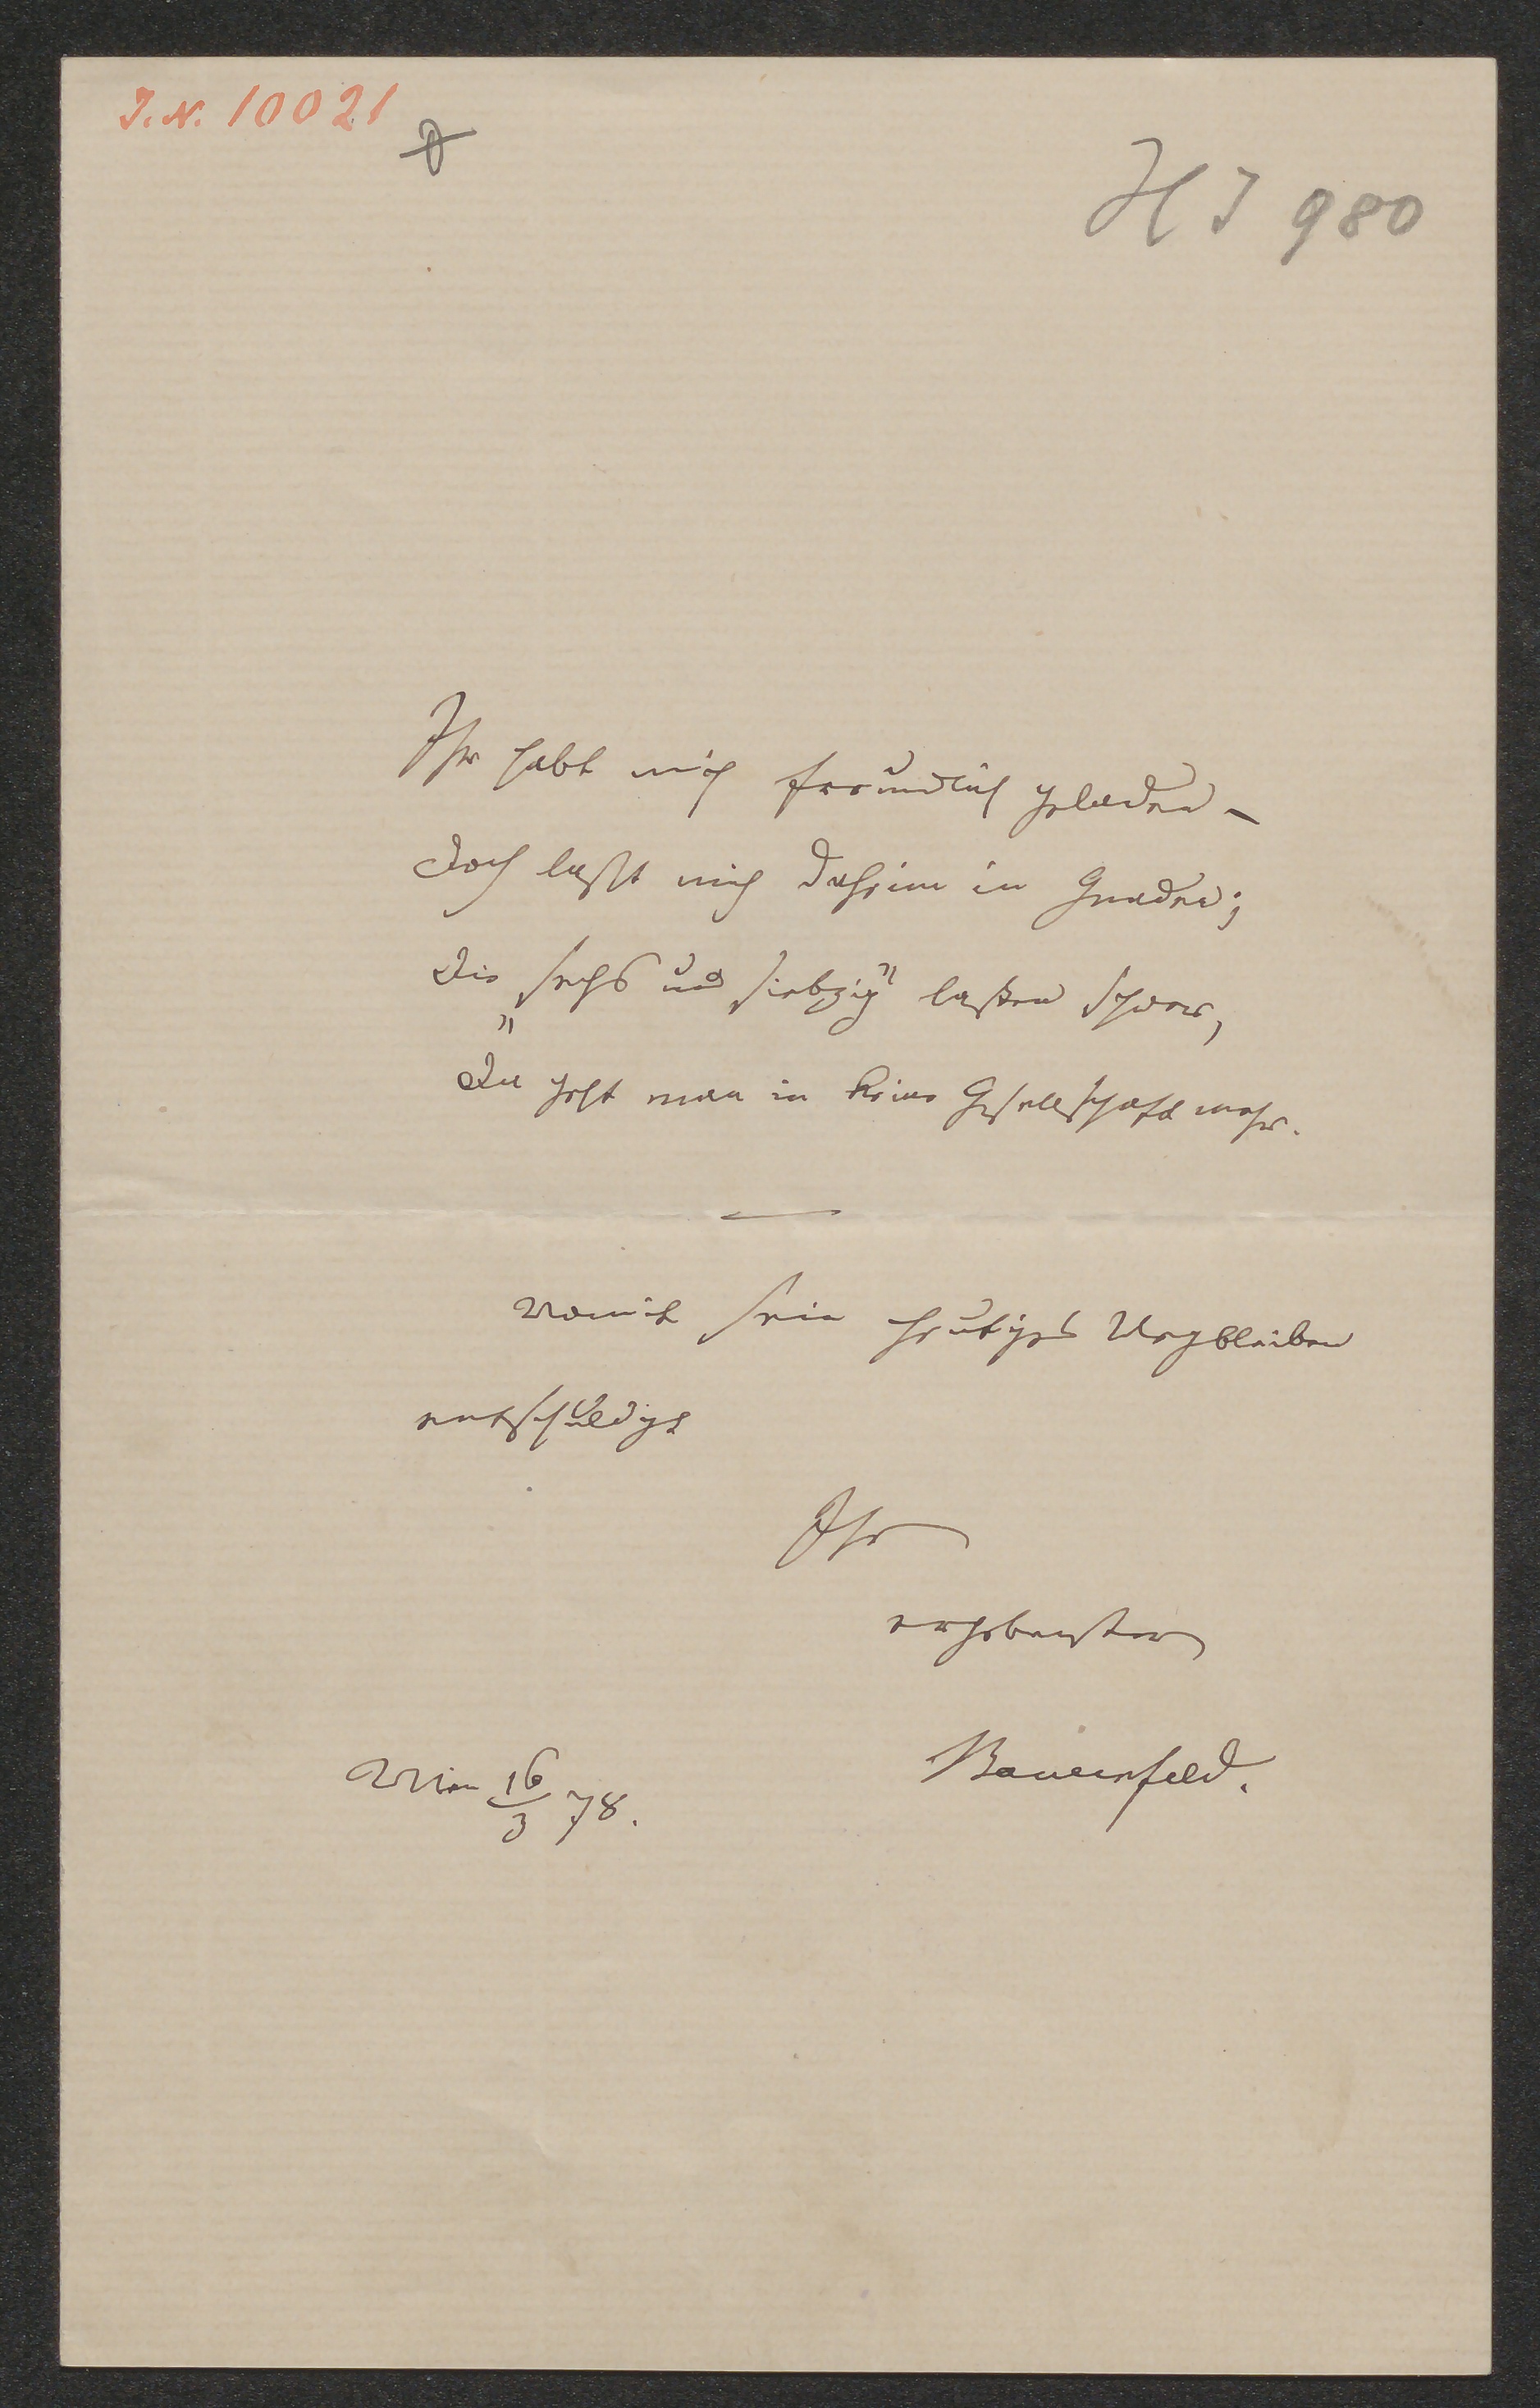 J. N. 10021
H I 980
Ihr habt mich freundlich geladen –
Doch laßt mich daheim in Gnaden;
Die „sechs und siebzig" lasten schwer,
Da geht man in keine Gesellschaft mehr.
Womit sein heutiges Wegbleiben
entschuldigt
Ihr
ergebenster
Bauernfeld.
Wien 16/3 78.